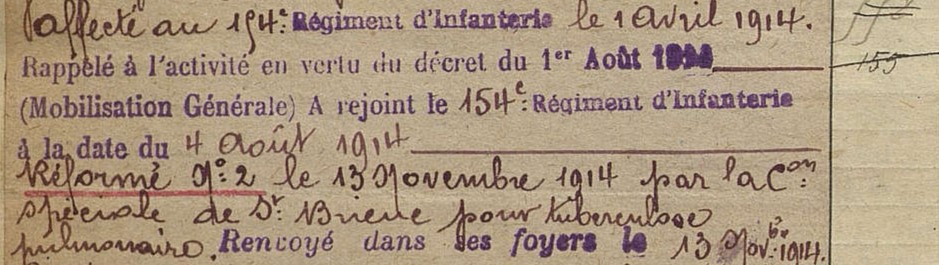 affecté au 154e Régiment d'Infanterie le 1 Avril 1914.
Rappelé à l'activité en vertu du décret du 1er Août 1914
(Mobilisation Générale) A rejoint le 154e Régiment d'Infanterie
à la date du 4 Août 1914
Réformé No 2 le 13 Novembre 1914 par la Con
spéciale de St Brieuc pour tuberculose
pulmonaire. Renvoyé dans ses foyers le 13 Nov.bre 1914.
155